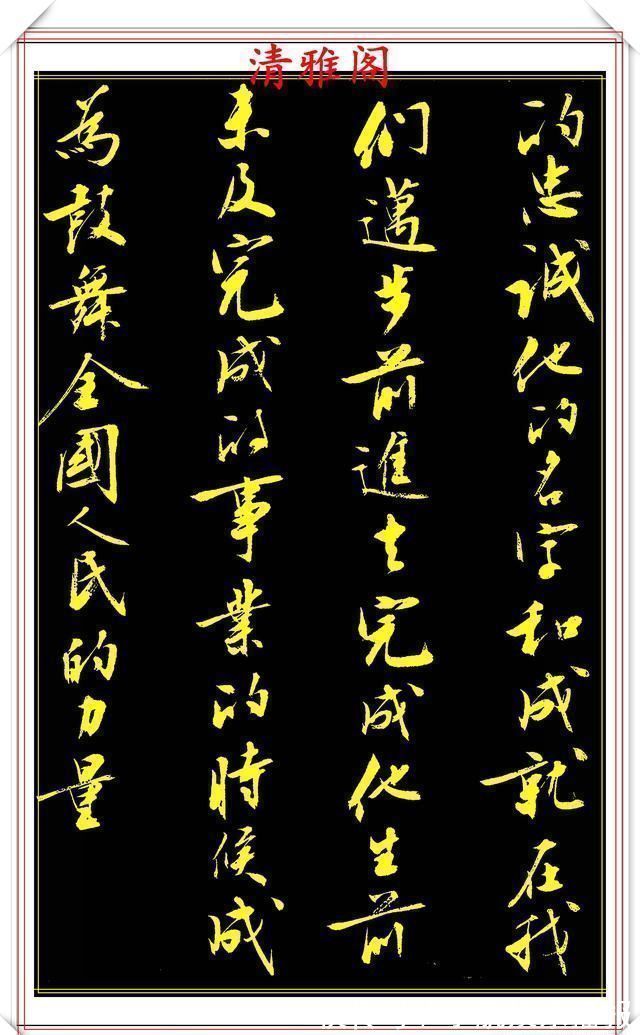 清雅阁
的忠诚他的名字和成就在我
们邁步前進去完成他生前
未及完成的事業的時候成
為鼓舞全國人民的力量